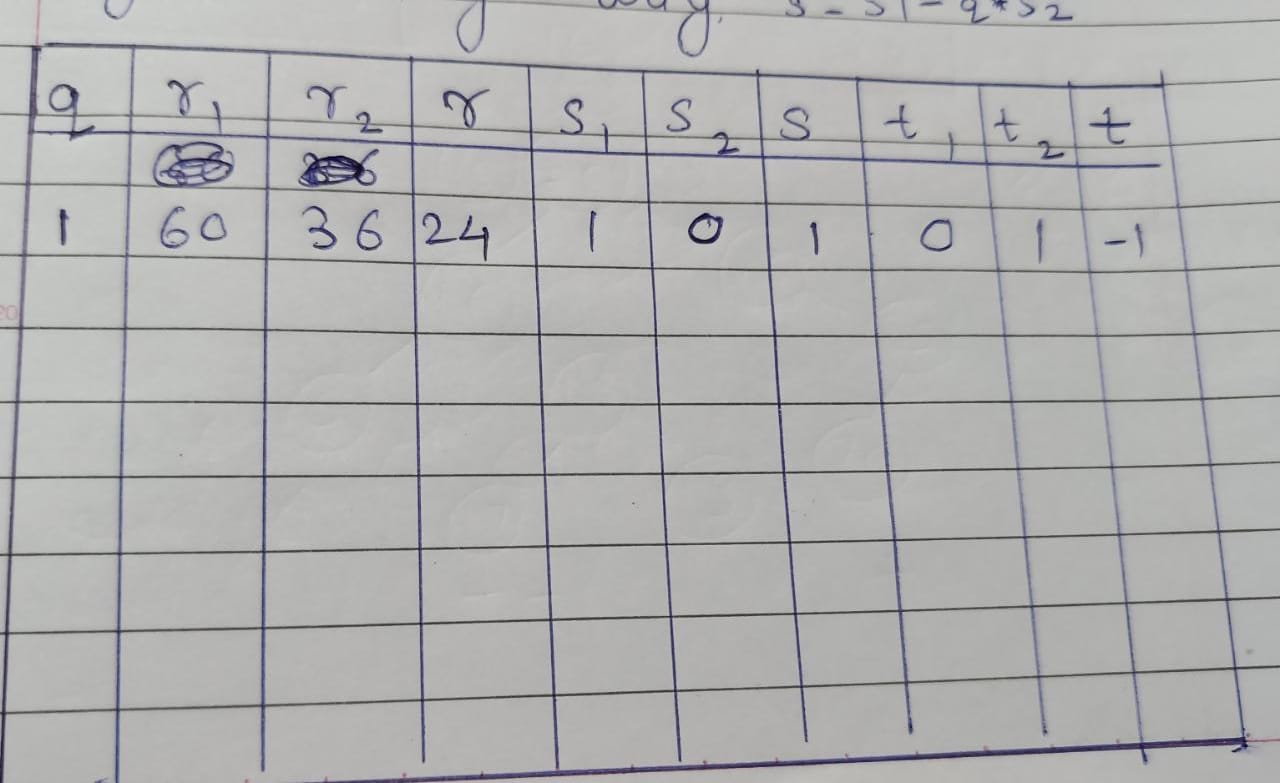 s = s1 - q*s2
q r1 r2 r s1 s2 s t1 t2 t
1 60 36 24 1 0 1 0 1 -1
20